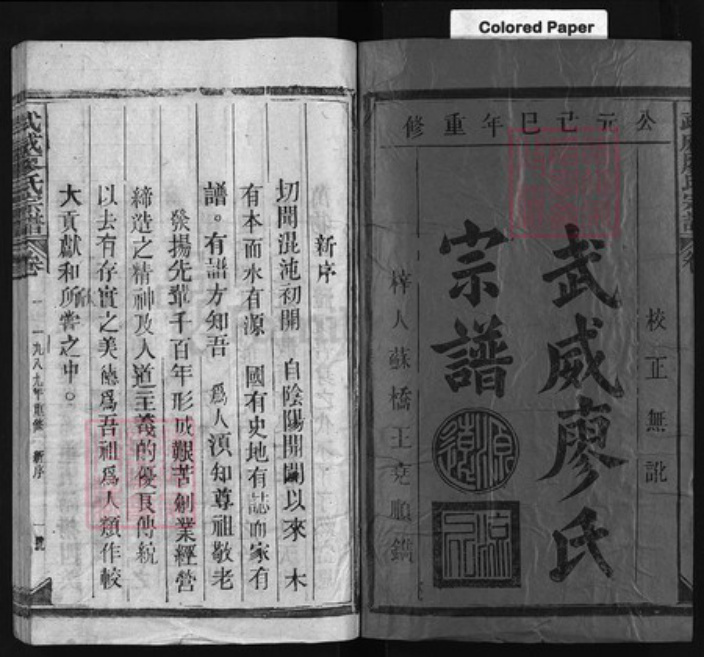 Colored Paper
公元己巳年重修
校正無訛
武威廖氏
宗譜
源遠
梓人蘇橋王堯順鐫
新序
切聞混沌初開　自陰陽開闢以來　木
有本而水有源　國有史地有誌而家有
譜。有譜方知吾　爲人須知尊祖敬老
發揚先輩千百年形成艱苦創業經營
締造之精神及人道主義的優良傳統
以去有存實之美德爲吾祖爲人類作較
大貢獻和所嘗之中。
武威廖氏宗譜
卷
一九八九年重修　新序　一號